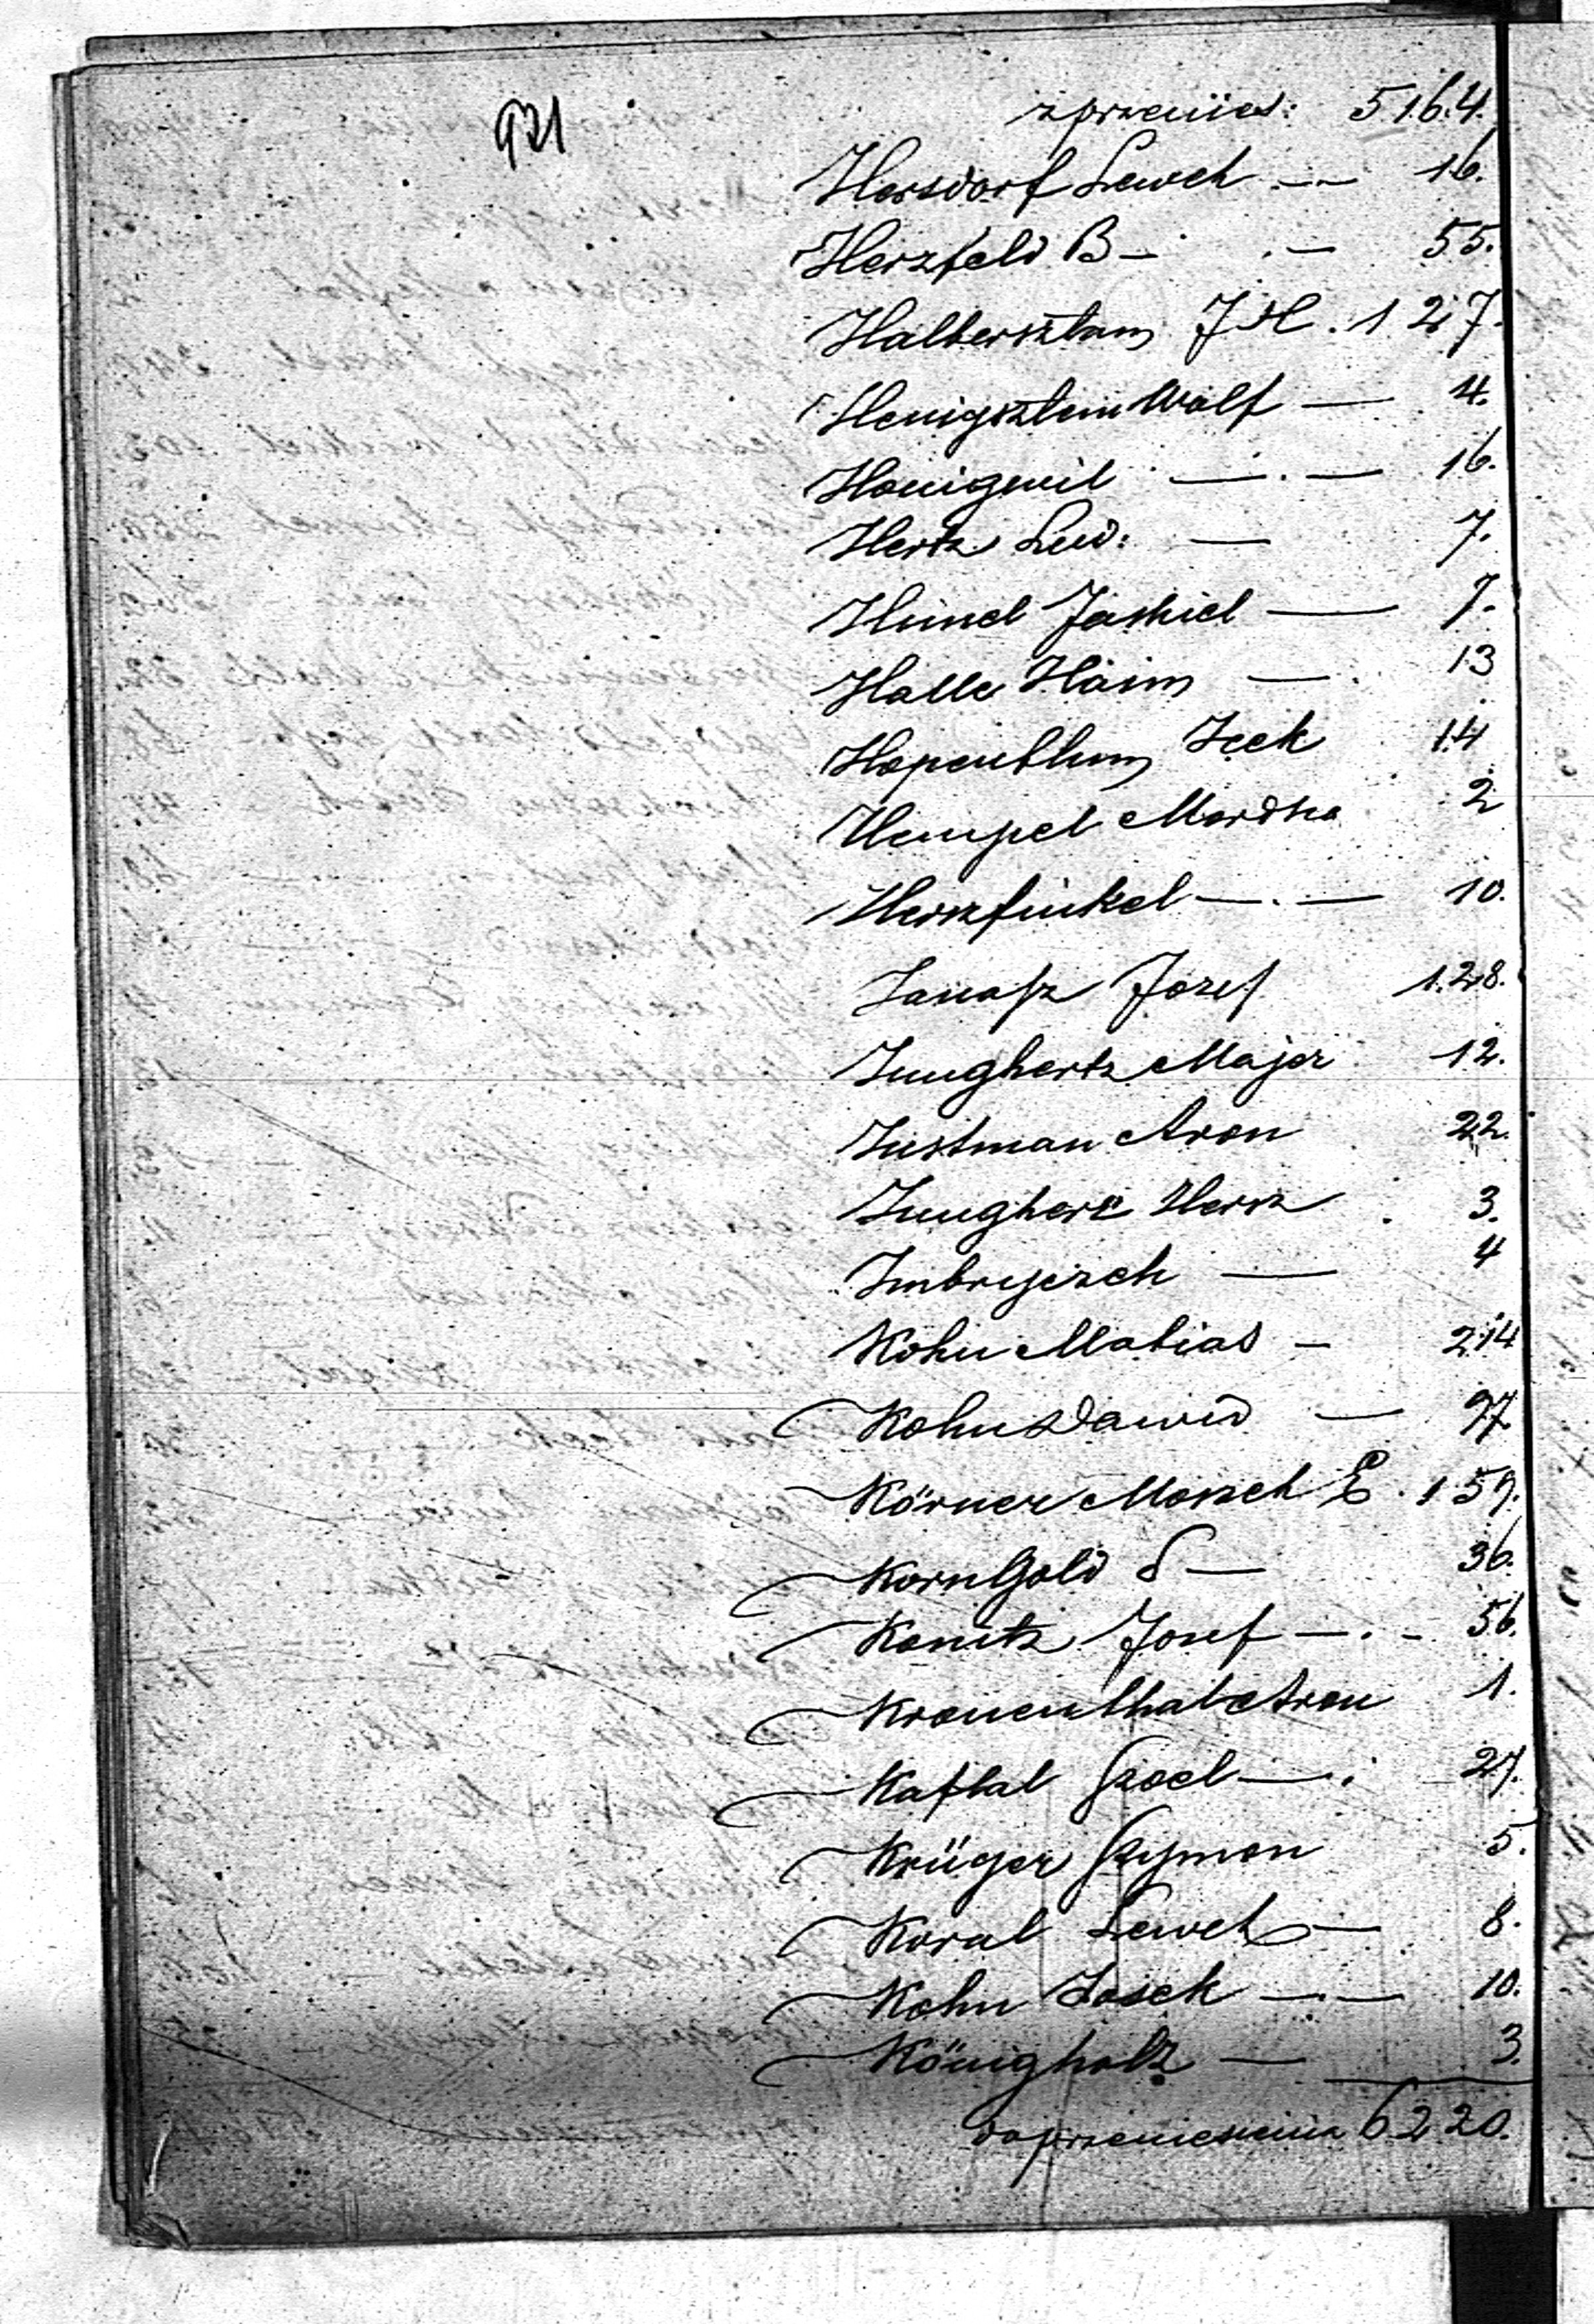 921
z przenies: 5164.
Hersdorf Lewek — 16.
Herzfeld B — . — 55.
Halbersztam J H . 127.
Henigsztein Wolf — 4.
Honigwil — . — 16.
Hertz Lew: — 7.
Himel Jaskiel — 7.
Halle Haim — . 13
Hopenblum Icek 14
Hempel Mordka 2
Herszfinkel — . — 10.
Janasz Jozef 128.
Junghertz Majer 12.
Justman Aron 22.
Jungherc Hersz 3.
Imbryczek — 4
Kohn Matias — 214
Kohn Dawid — 97
Körner Moszek E. 159.
Korn Gold S — 36.
Konitz Josef — . — 56.
Kronenthal Aron 1.
Kaftal Szoel — . 27.
Krüger Szymon 5.
Koral Lewek — 8.
Kohn Josek — — 10.
Königholz — 3.
do przeniesienia 6220.